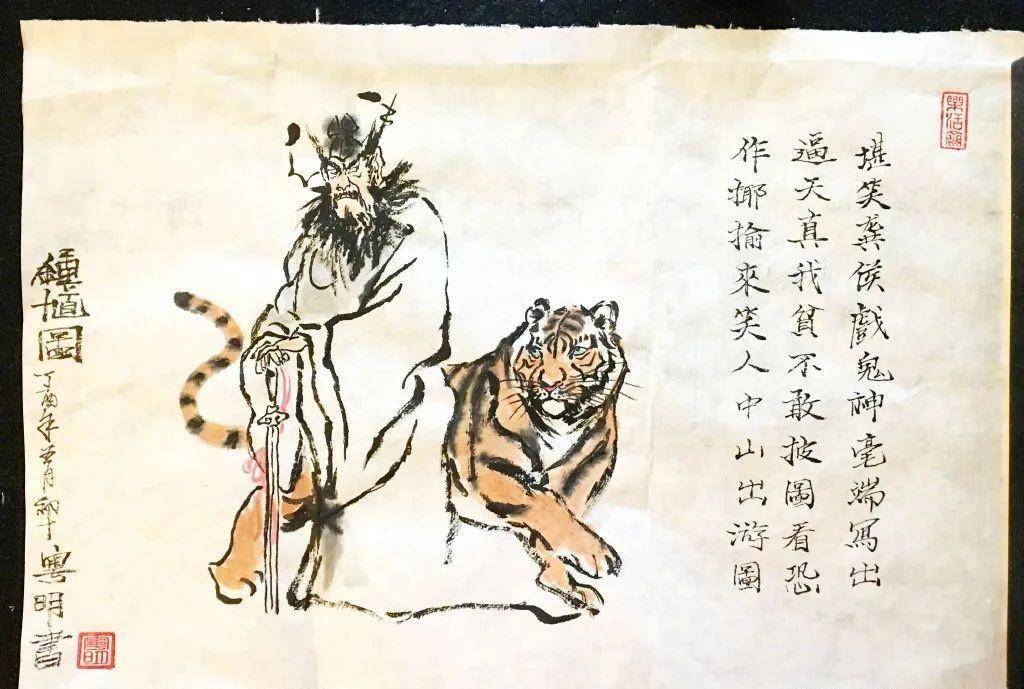 堪笑龔侯戲鬼神毫端寫出
逼天真我貧不敢披圖看恐
作揶揄來笑人中山出游圖
鍾馗圖
丁酉年 月 明書